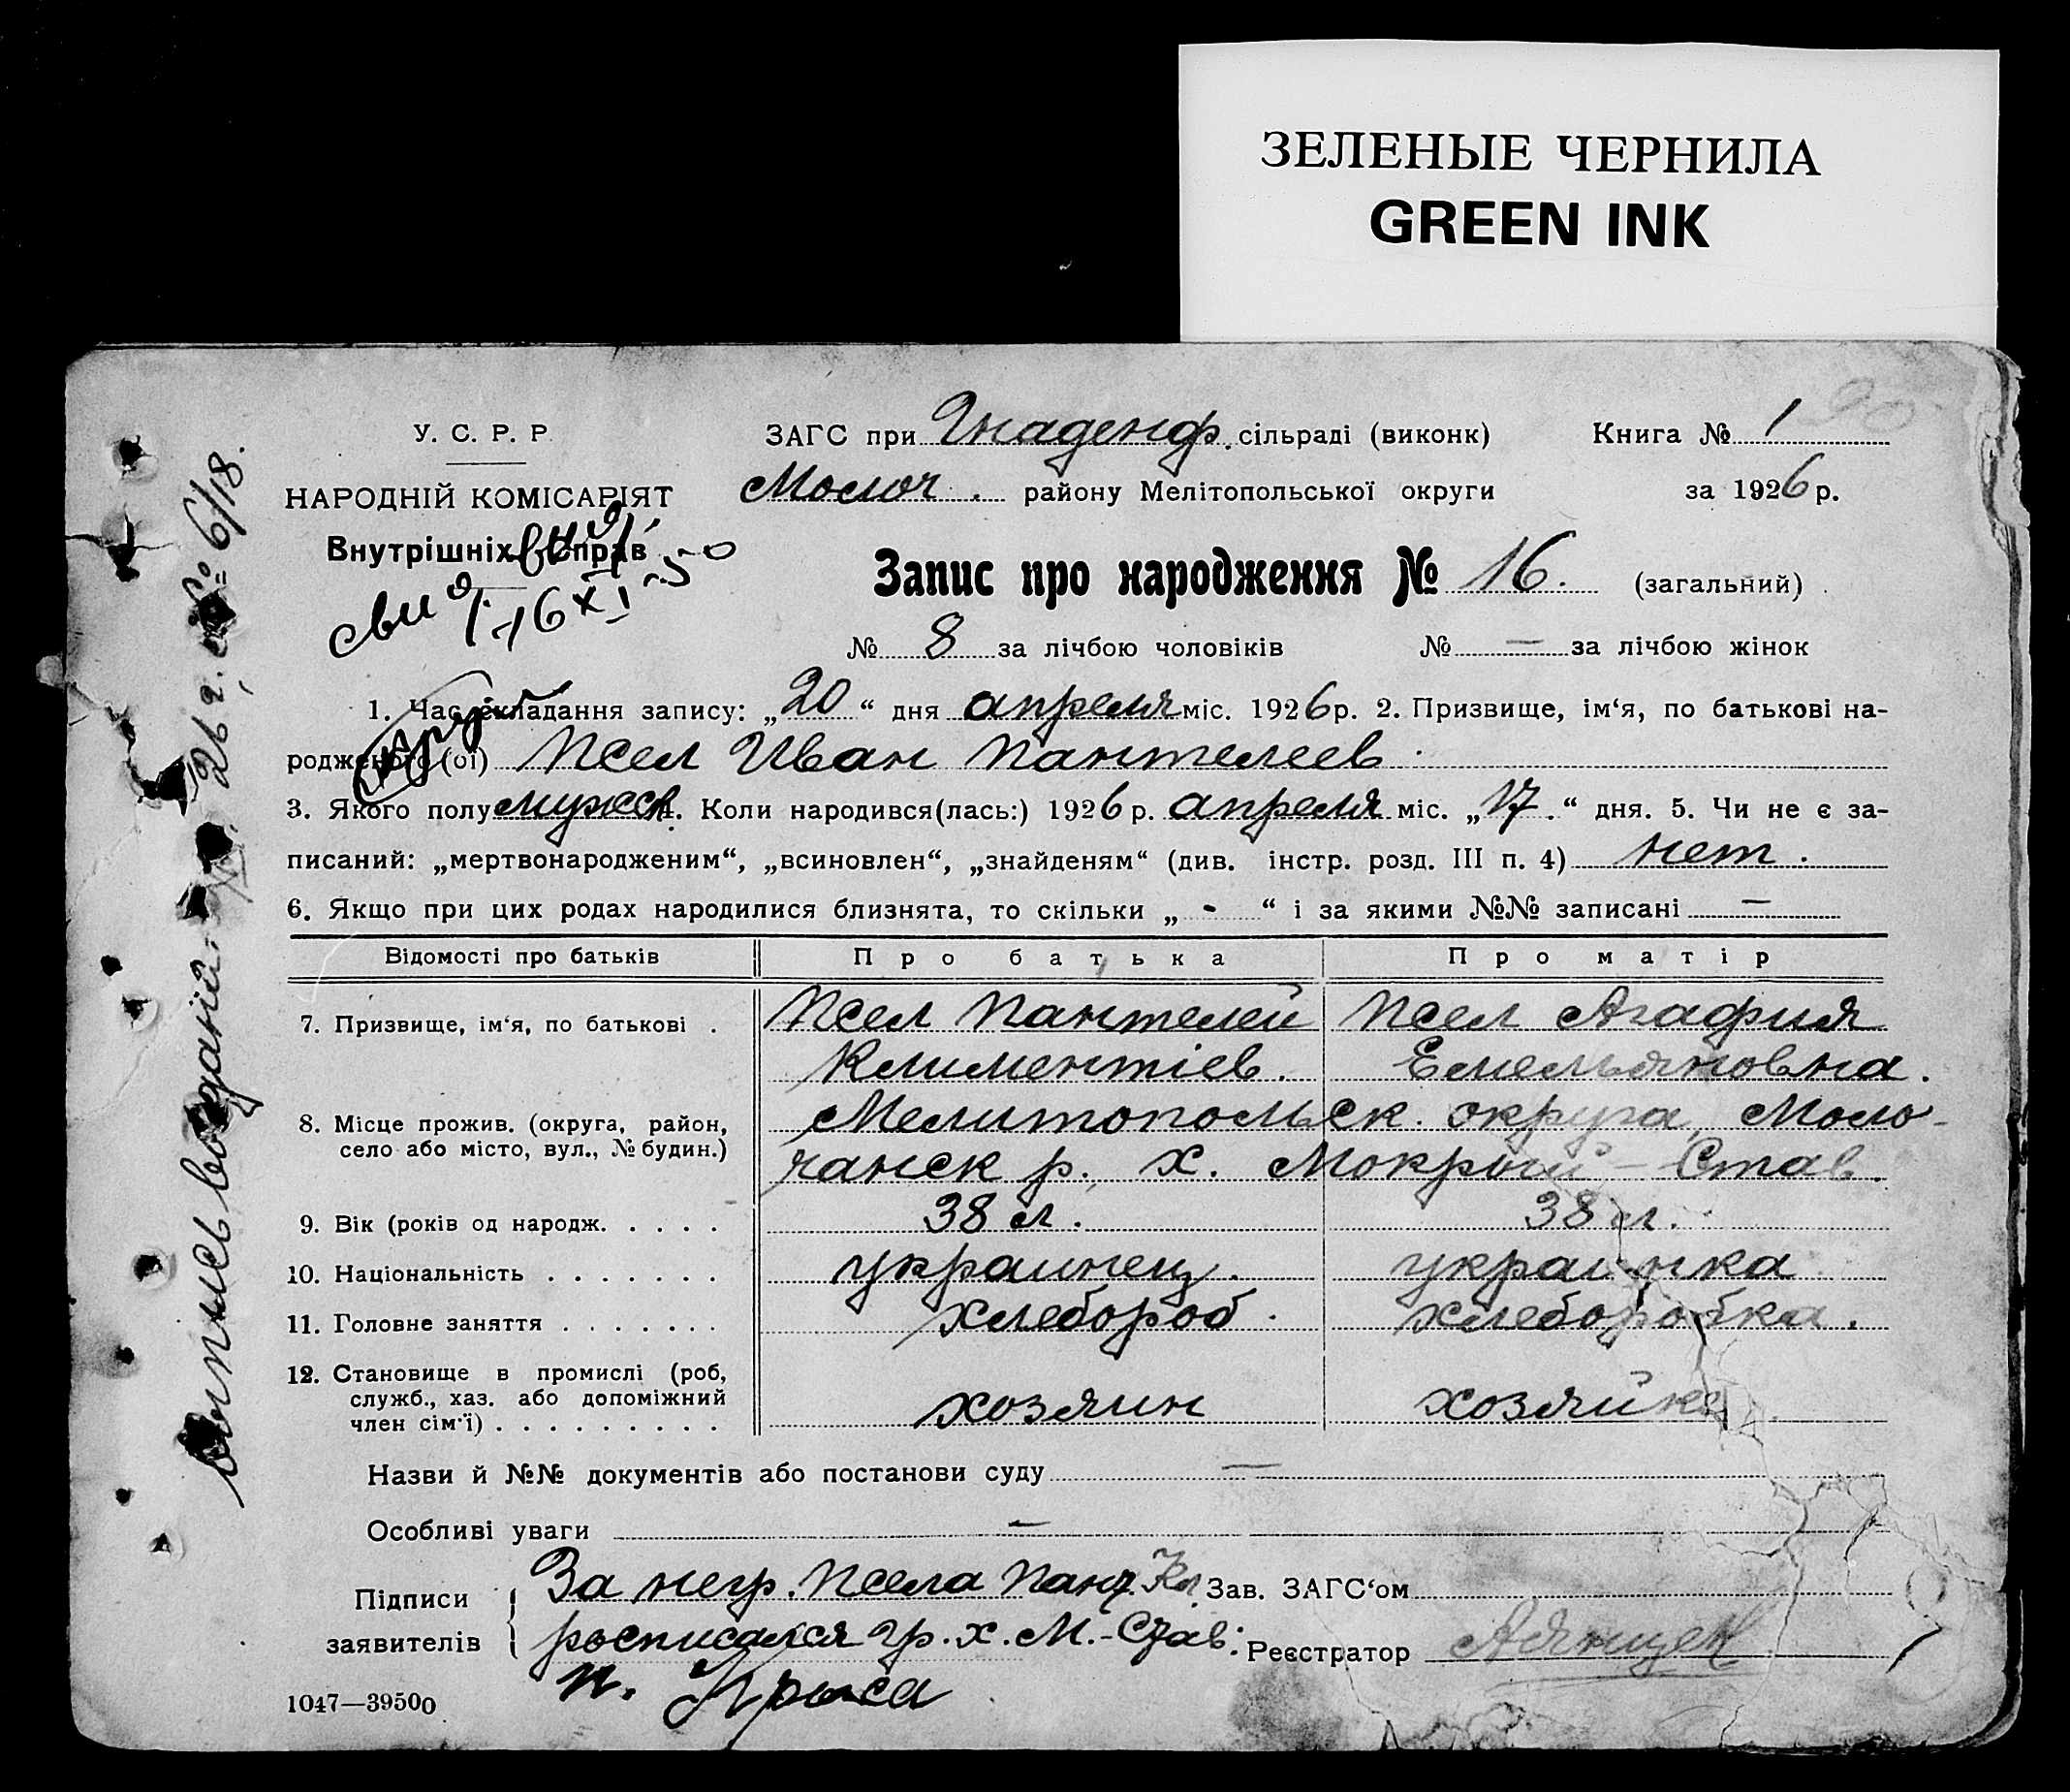 ЗЕЛЕНЫЕ ЧЕРНИЛА
GREEN INK
У. С. Р. Р.
НАРОДНІЙ КОМІСАРІЯТ
Внутрішніх Справ
ЗАГС при Гнаденф. сільраді (виконк)
Молоч. району Мелітопольської округи
Книга № 1
за 1926 р.
Запис про народження № 16. (загальний)
№ 8 за лічбою чоловіків № — за лічбою жінок
1. Час складання запису: „20“ дня апреля міс. 1926 р. 2. Призвище, ім‘я, по батькові на-
родженого (ої) Псел Иван Пантелеев
3. Якого полу мужск. 4. Коли народився(лась:) 1926 р. апреля міс. „17.“ дня. 5. Чи не є за-
писаний: „мертвонародженим“, „всиновлен“, „знайденям“ (див. інстр. розд. III п. 4) нет.
6. Якщо при цих родах народилися близнята, то скільки „ - “ і за якими №№ записані —
Відомості про батьків Про батька Про матір
7. Призвище, ім‘я, по батькові . Псел Пантелей Псел Агафия
Климентіев. Емельяновна.
8. Місце прожив. (округа, район, Мелитопольск. округа, Моло-
село або місто, вул., № будин.) чанск р. х. Мокрый-Став.
9. Вік (років од народж. . . . . 38 л. 38 л.
10. Національність . . . . . . . украинец. украинка
11. Головне заняття . . . . . . . хлебороб. хлеборобка.
12. Становище в промислі (роб,
служб., хаз. або допоміжний
член сім‘ї) . . . . . . . . . хозяин хозяйка
Назви й №№ документів або постанови суду —
Особливі уваги —
Підписи За негр. Псела Пант. Кл. Зав. ЗАГС‘ом
заявителів росписался гр. х. М.-Став: Реєстратор
п. Крыса
1047—39500